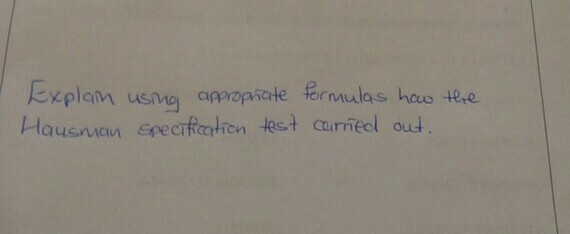 Explain using appropriate formulas how the
Hausman specification test carried out.